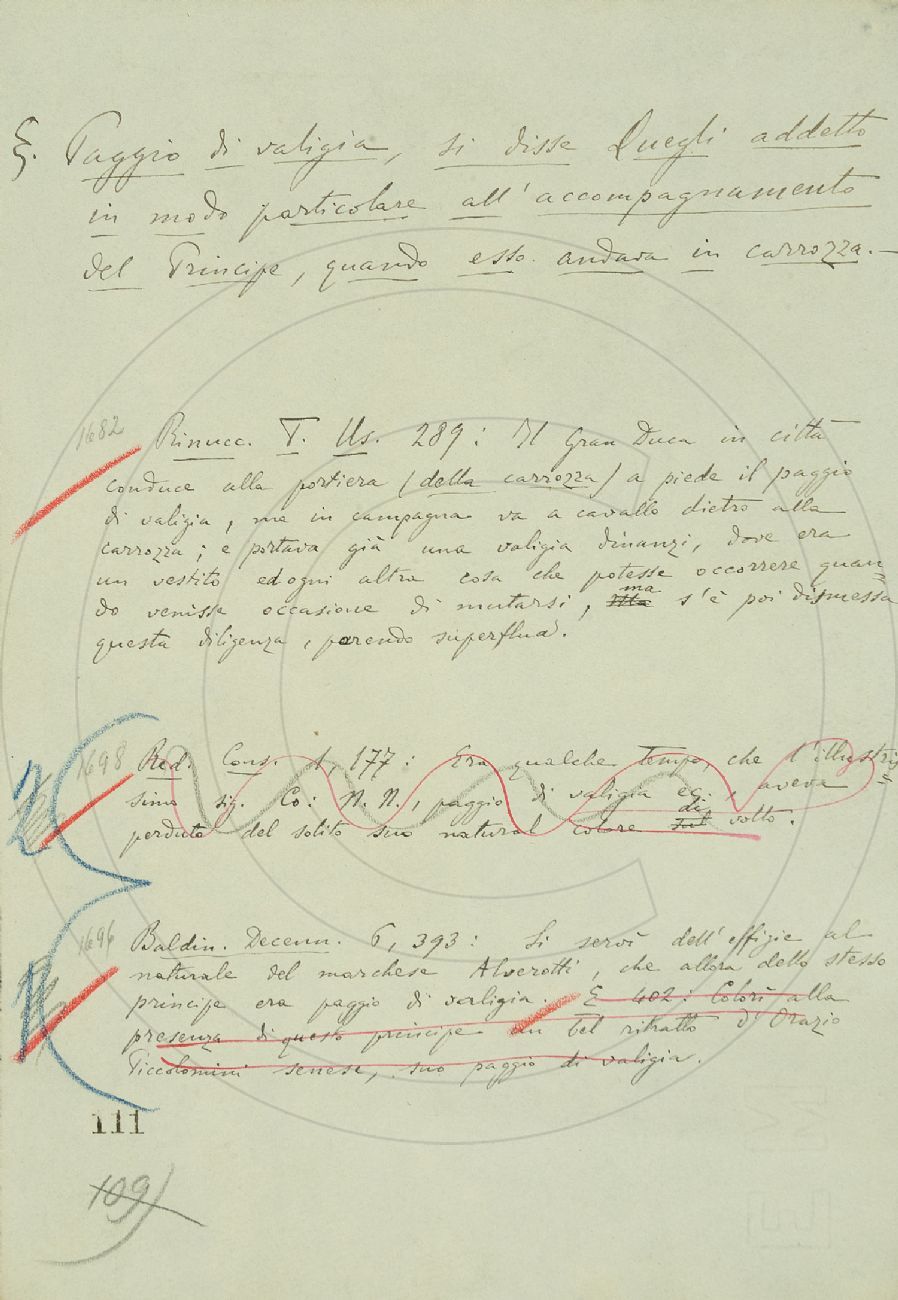 §. Paggio di valigia, si disse Quegli addetto
in modo particolare all'accompagnamento
del Principe, quando esso andava in carrozza.—
1682 Rinucc. T. Us. 289: Il Gran Duca in città
conduce alla portiera (della carrozza) a piede il paggio
di valigia, ma in campagna va a cavallo dietro alla
carrozza; e portava già una valigia dinanzi, dove era
un vestito ed ogni altra cosa che potesse occorrere quan=
do venisse occasione di mutarsi, ma s'è poi dismessa
questa diligenza, parendo superflua.
1698 Red. Cons. 1, 177: Era qualche tempo, che l'illustris=
simo sig. Co: N. N., paggio di valigia ec., aveva
perduto del solito suo natural colore di volto.
1696 Baldin. Decenn. 6, 393: Si servì dell'effigie al
naturale del marchese Alverotti, che allora dello stesso
principe era paggio di valigia. E 402: Colorì alla
presenza di questo principe un bel ritratto d'Orazio
Piccolomini senese, suo paggio di valigia.
111
109